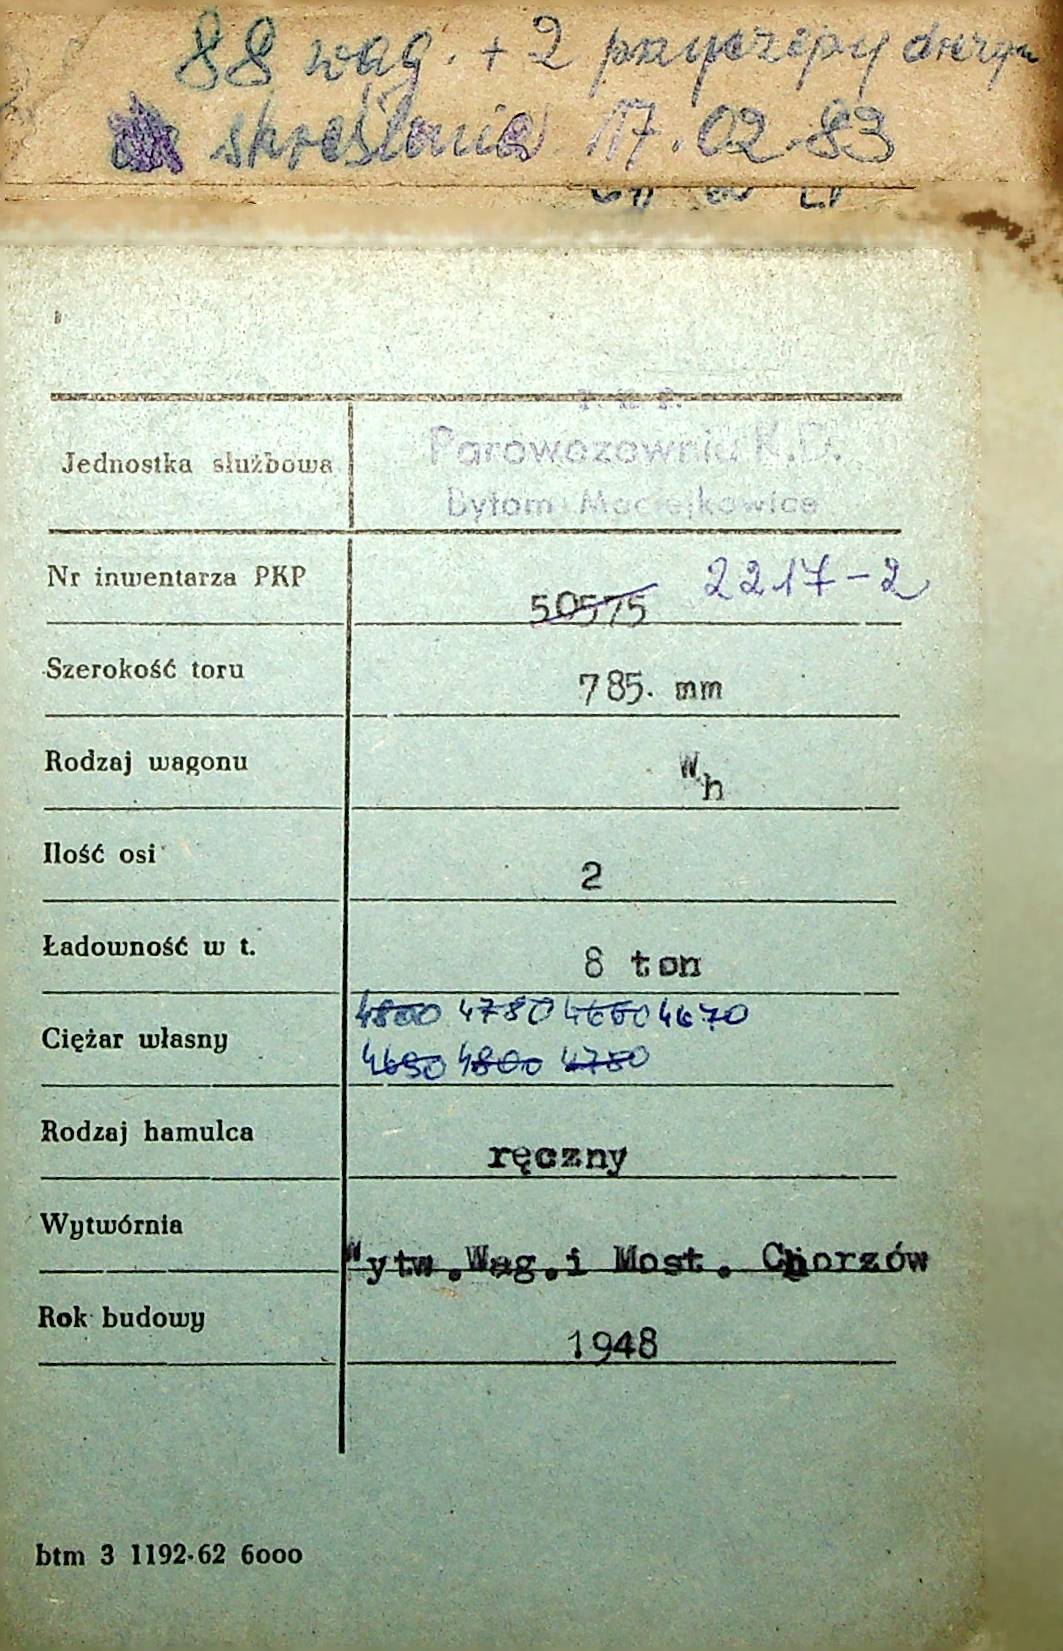 88 wag. + 2 przyczepy
skreślenie 17.02.83
P.K.P.
Jednostka służbowa Parowozownia K.D.
Bytom Maciejkowice
Nr inwentarza PKP 50575 2217-2
Szerokość toru 785. mm
Rodzaj wagonu Wh
Ilość osi 2
Ładowność w t. 8 ton
4800 4780 4660 4670
Ciężar własny
4650 4800 4780
Rodzaj hamulca ręczny
Wytwórnia Wytw.Wag.i Most. Chorzów
Rok budowy 1948
btm 3 1192-62 6000